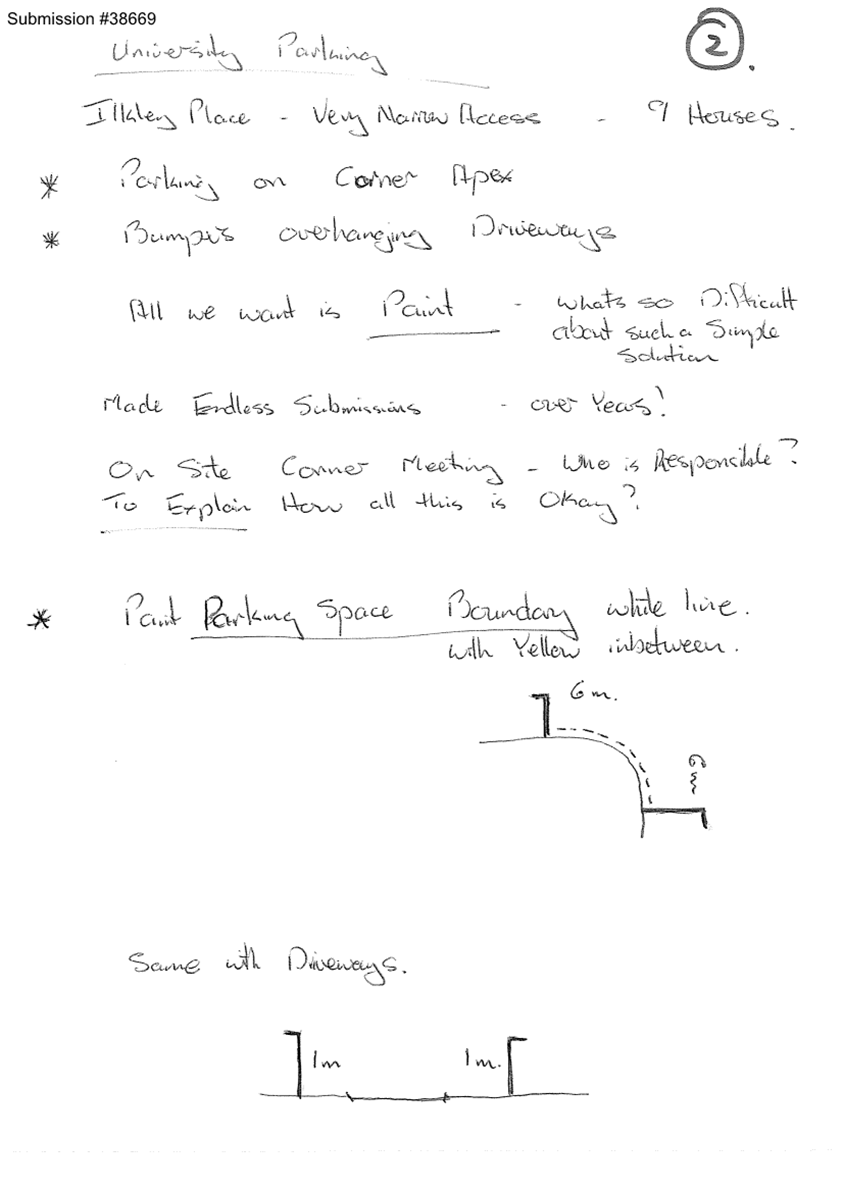 Submission #38669
2.
University Parking
Ilkley Place - Very Narrow Access - 9 Houses.
* Parking on Corner Apex
* Bumpers overhanging Driveways
All we want is Paint - whats so Difficult
about such a Simple
Solution
Made Endless Submissions - over Years!
On Site Corner Meeting - Who is Responsible?
To Explain How all this is Okay?
* Paint Parking Space Boundary white line.
with Yellow inbetween.
6m.
6m
Same with Driveways.
1m 1m.